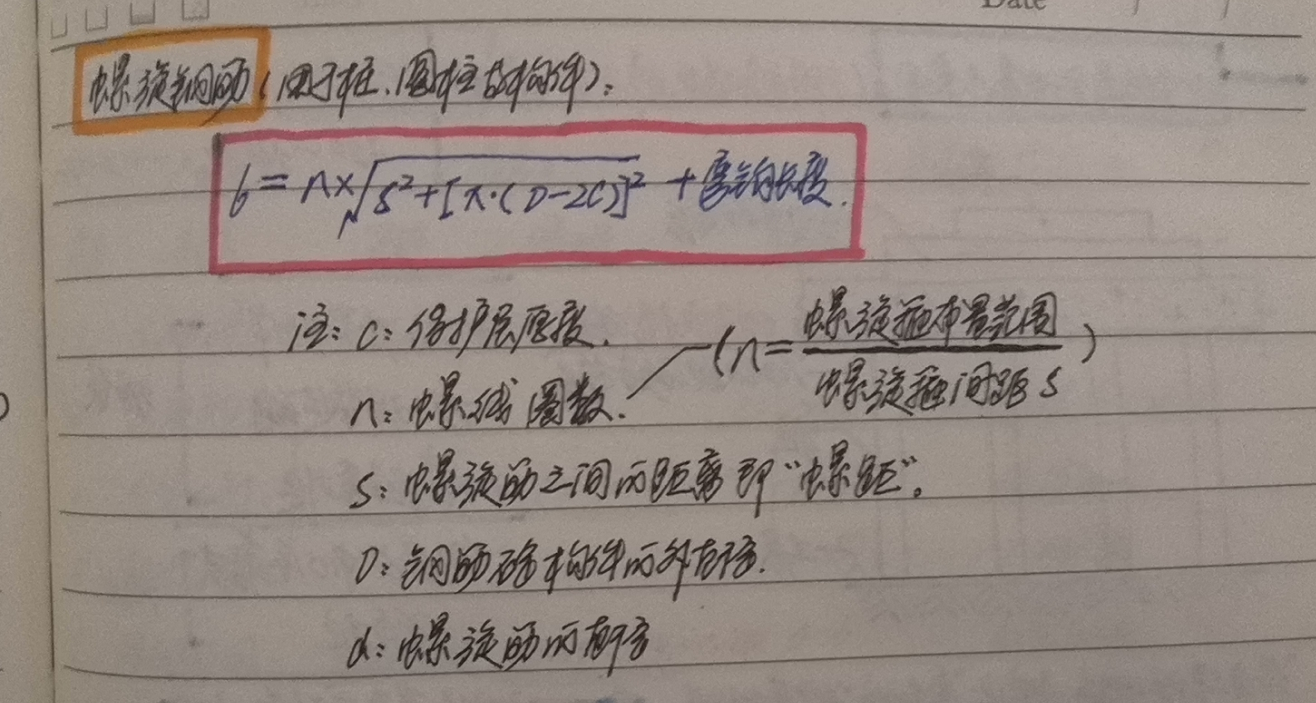 Date
螺旋钢筋(用于桩、圆柱故构件):
b=n×√S²+[π·(D-2C)]² +弯钩长度.
注: C: 保护层厚度.
(n=螺旋箍布置范围/螺旋箍间距S)
n: 螺线圈数.
S: 螺旋筋之间的距离即“螺距”。
D: 钢筋砼构件的外直径.
d: 螺旋筋的直径